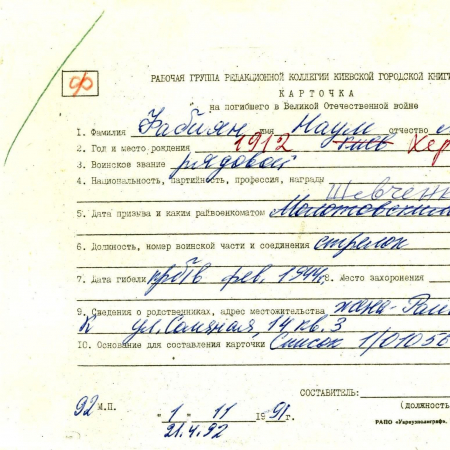 ф
РАБОЧАЯ ГРУППА РЕДАКЦИОННОЙ КОЛЛЕГИИ КИЕВСКОЙ ГОРОДСКОЙ КНИГ
КАРТОЧКА
на погибшего в Великой Отечественной войне
1. Фамилия Забиян имя Наум отчество
2. Год и место рождения 1912 Киев Хер
3. Воинское звание рядовой
4. Национальность, партийность, профессия, награды
Шевченк
5. Дата призыва и каким райвоенкоматом Молотовским
6. Должность, номер воинской части и соединения стрелок
7. Дата гибели пр б/в фев. 1944г. 8. Место захоронения
9. Сведения о родственниках, адрес местожительства жена-
К ул. 14 кв. 3
10. Основание для составления карточки Список 1/01056
СОСТАВИТЕЛЬ:
(ДОЛЖНОСТЬ
92 М.П. "1" 11 1991г.
21.4.92
РАПО «Укрвузполиграф».